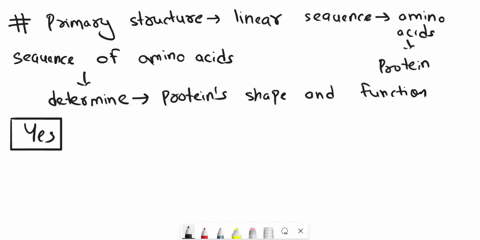 # Primary structure → linear sequence → amino
acids
↓
Protein
sequence of amino acids
↓
determine → Protein's shape and function
Yes